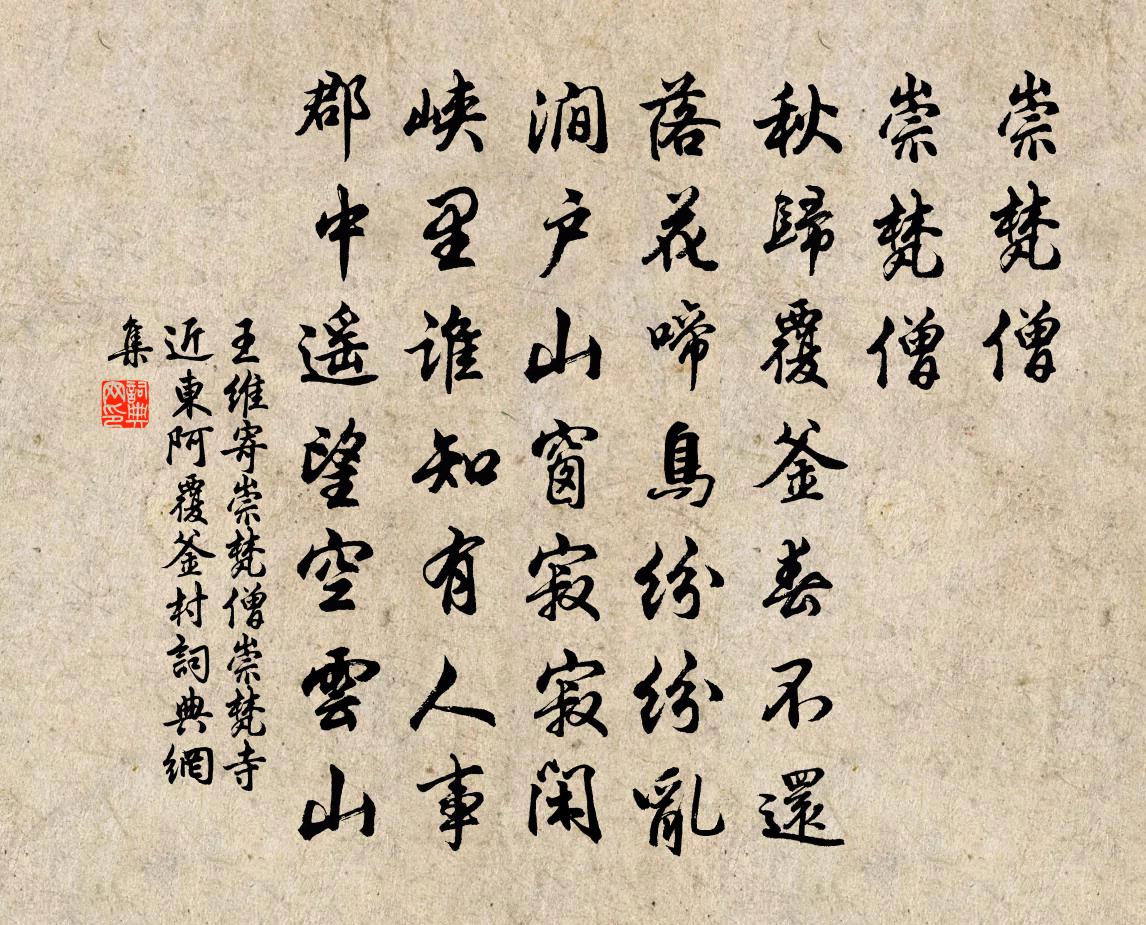 崇梵僧
崇梵僧
秋歸覆釜春不還
落花啼鳥紛紛亂
澗户山窗寂寂閑
峽里誰知有人事
郡中遥望空雲山
王維寄崇梵僧崇梵寺
近東阿覆釜村詞典網
集
詞典
网印